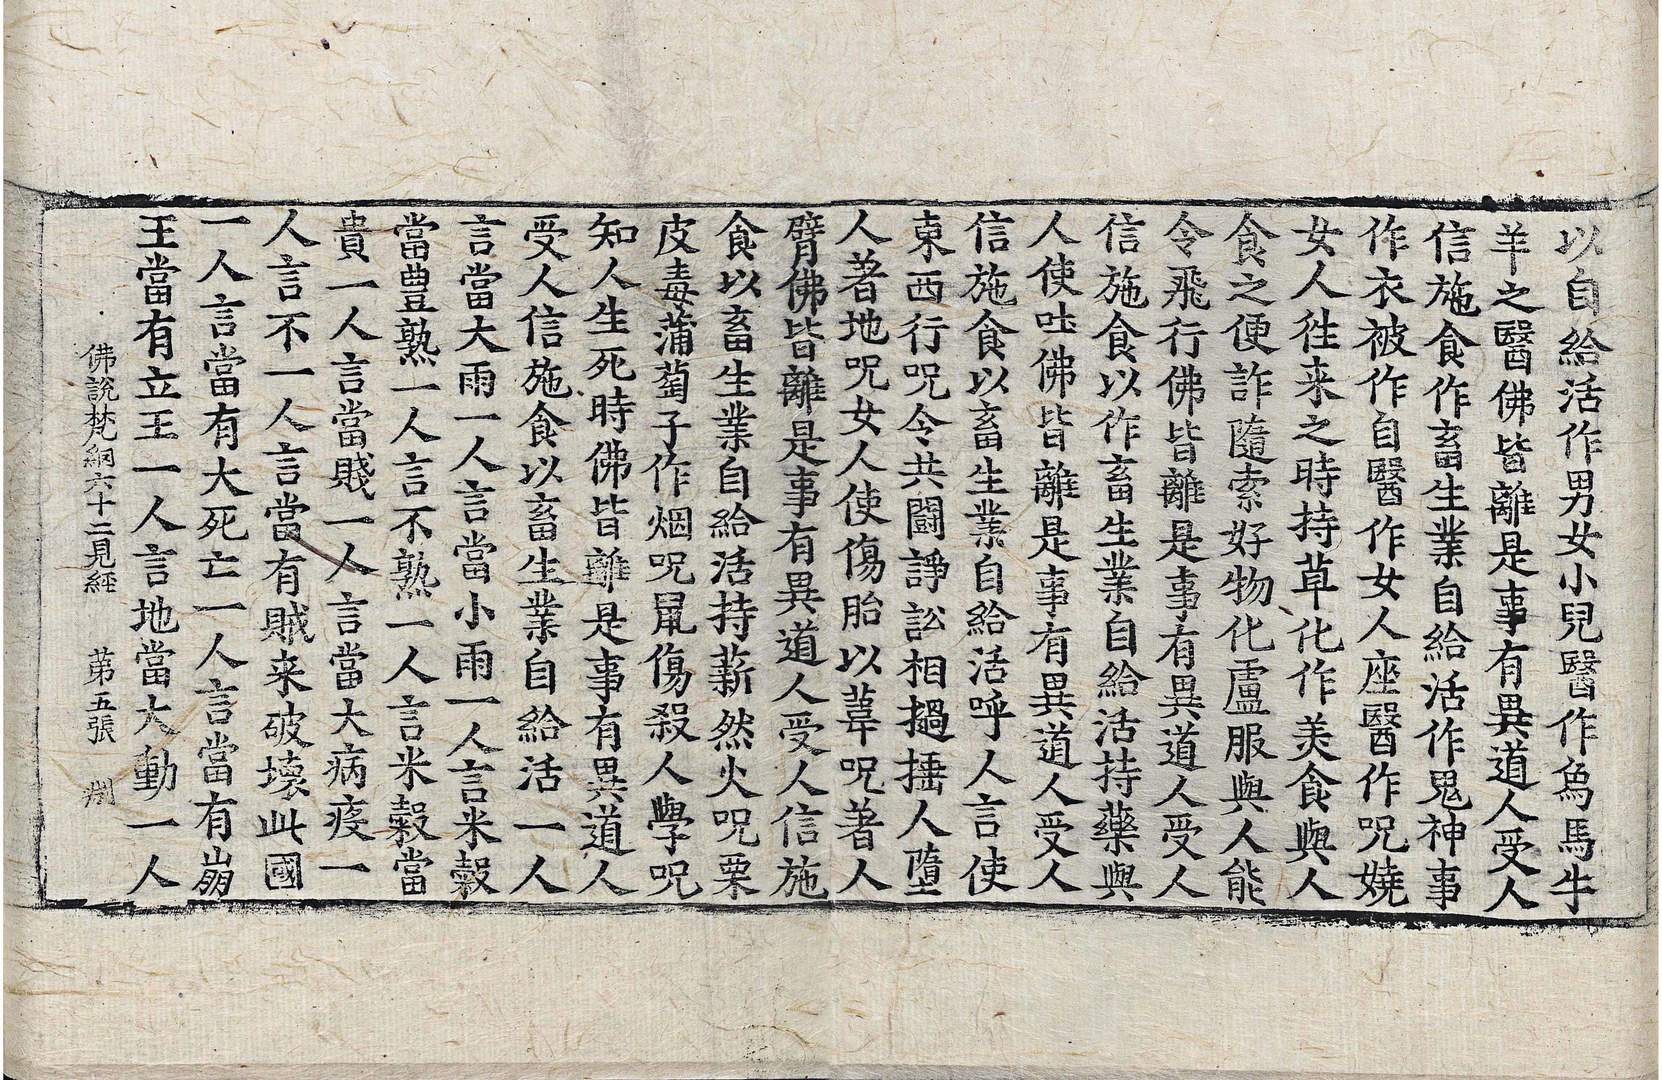 以自給活作男女小兒醫作爲馬牛
羊之醫佛皆離是事有異道人受人
信施食作畜生業自給活作鬼神事
作衣被作自醫作女人座醫作呪嬈
女人徃来之時持草化作美食與人
食之便詐隨索好物化盧服與人能
令飛行佛皆離是事有異道人受人
信施食以作畜生業自給活持藥與
人使吐佛皆離是事有異道人受人
信施食以畜生業自給活呼人言使
東西行呪令共鬪諍訟相撾捶人墮
人著地呪女人使傷胎以葦呪著人
臂佛皆離是事有異道人受人信施
食以畜生業自給活持薪然火呪栗
皮毒蒲萄子作烟呪鼠傷殺人學呪
知人生死時佛皆離是事有異道人
受人信施食以畜生業自給活一人
言當大雨一人言當小雨一人言米穀
當豊熟一人言不熟一人言米穀當
貴一人言當賤一人言當大病疫一
人言不一人言當有賊来破壞此國
一人言當有大死亡一人言當有崩
王當有立王一人言地當大動一人
佛說梵網六十二見經 第五張